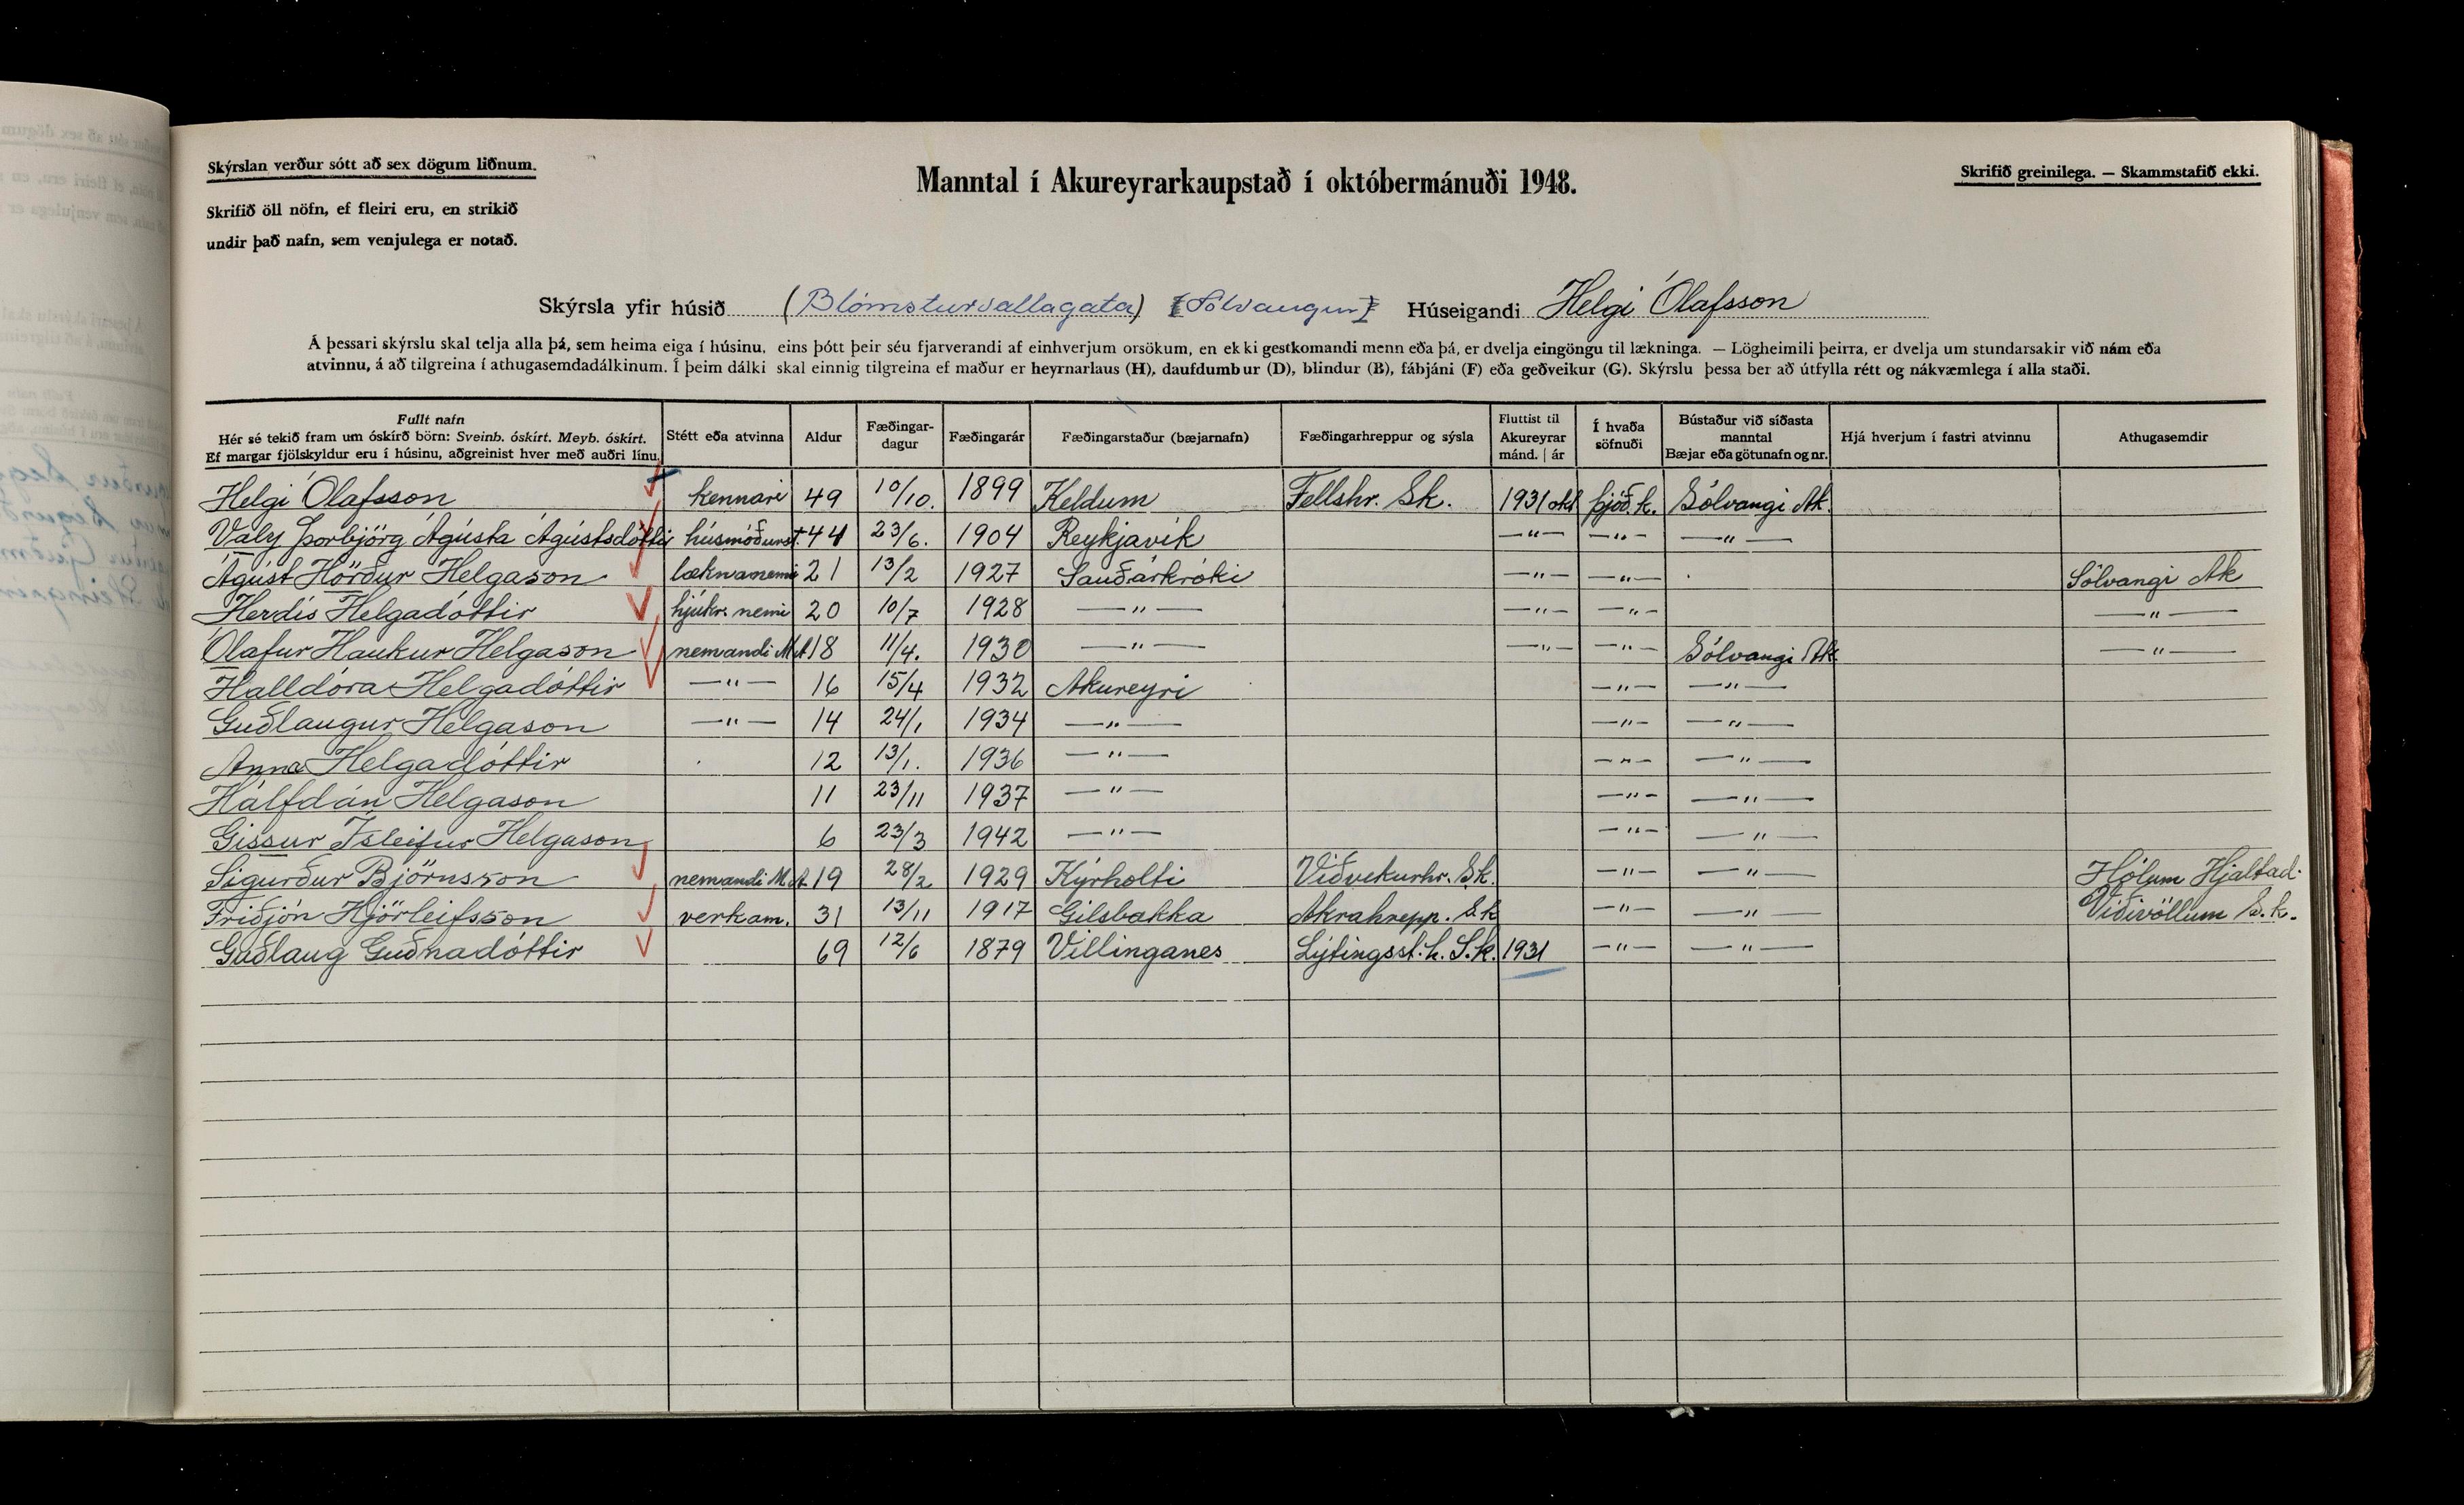 Skýrslan verður sótt að sex dögum liðnum.
Skrifið öll nöfn, ef fleiri eru, en strikið
undir það nafn, sem venjulega er notað.
Manntal í Akureyrarkaupstað í októbermánuði 1948.
Skrifið greinilega. — Skammstafið ekki.
Skýrsla yfir húsið (Blómstursvallagata) [Sólvangur] Húseigandi Helgi Ólafsson
Á þessari skýrslu skal telja alla þá, sem heima eiga í húsinu, eins þótt þeir séu fjarverandi af einhverjum orsökum, en ekki gestkomandi menn eða þá, er dvelja eingöngu til lækninga. — Lögheimili þeirra, er dvelja um stundarsakir við nám eða
atvinnu, á að tilgreina í athugasemdadálkinum. Í þeim dálki skal einnig tilgreina ef maður er heyrnarlaus (H), daufdumbur (D), blindur (B), fábjáni (F) eða geðveikur (G). Skýrslu þessa ber að útfylla rétt og nákvæmlega í alla staði.
Fullt nafn Hér sé tekið fram um óskírð börn: Sveinb. óskírt. Meyb. óskírt. Ef margar fjölskyldur eru í húsinu, aðgreinist hver með auðri línu. Stétt eða atvinna Aldur Fæðingar-dagur Fæðingarár Fæðingarstaður (bæjarnafn) Fæðingarhreppur og sýsla Fluttist til Akureyrar mánd. | ár Í hvaða söfnuði Bústaður við síðasta manntal Bæjar eða götunafn og nr. Hjá hverjum í fastri atvinnu Athugasemdir
Helgi Ólafsson kennari 49 10/10. 1899 Keldum Fellshr. Sk. 1931 okt þjóð.k. Sólvangi Ak.
Valý Þorbjörg Ágústa Ágústsdóttir húsmóðurst. 44 23/6. 1904 Reykjavík —"— —"— —"—
Ágúst Hörður Helgason læknanemi 21 13/2 1927 Sauðárkróki —"— —"— Sólvangi Ak
Herdís Helgadóttir hjúkr. nemi 20 10/7 1928 —"— —"— —"— —"—
Ólafur Haukur Helgason nemandi M.A 18 11/4. 1930 —"— —"— —"— Sólvangi Ak —"—
Halldóra Helgadóttir —"— 16 15/4 1932 Akureyri —"— —"—
Guðlaugur Helgason —"— 14 24/1 1934 —"— —"— —"—
Anna Helgadóttir 12 13/1. 1936 —"— —"— —"—
Hálfdán Helgason 11 23/11 1937 —"— —"— —"—
Gissur Ísleifur Helgason 6 23/3 1942 —"— —"— —"—
Sigurður Björnsson nemandi M.A. 19 28/2 1929 Kýrholti Viðvekurhr. Sk. —"— —"— Hólum Hjaltad.
Friðjón Hjörleifsson verkam. 31 13/11 1917 Gilsbakka Akrahrepp. Sk —"— —"— Víðivöllum S.k.
Guðlaug Guðnadóttir 69 12/6 1879 Villinganes Lýtingsst.h. S.k. 1931 —"— —"—